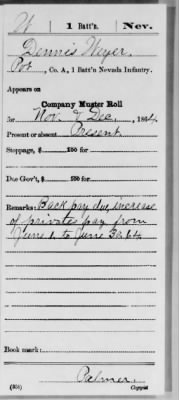 W | 1 Batt'n. | Nev.
Dennis Weyer
Pvt, Co. A, 1 Batt'n Nevada Infantry.
Appears on
Company Muster Roll
for Nov. & Dec., 1864.
Present or absent Present
Stoppage, $ 100 for
Due Gov't, $ 100 for
Remarks: Back pay due, increase
of privates pay from
June 1, to June 30, 64.
Book mark:
Palmer.
(358) Copyist.